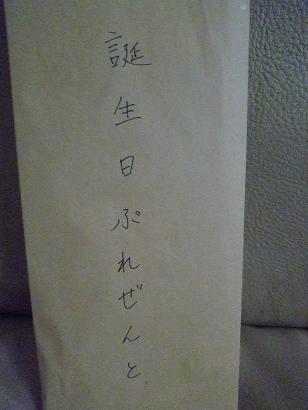 誕生日ぷれぜんと